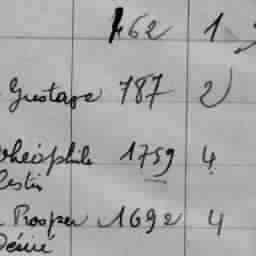 462 1
Gustave 787 2
Théophile 1759 4
lestin
Prosper 1692 4
Désiré